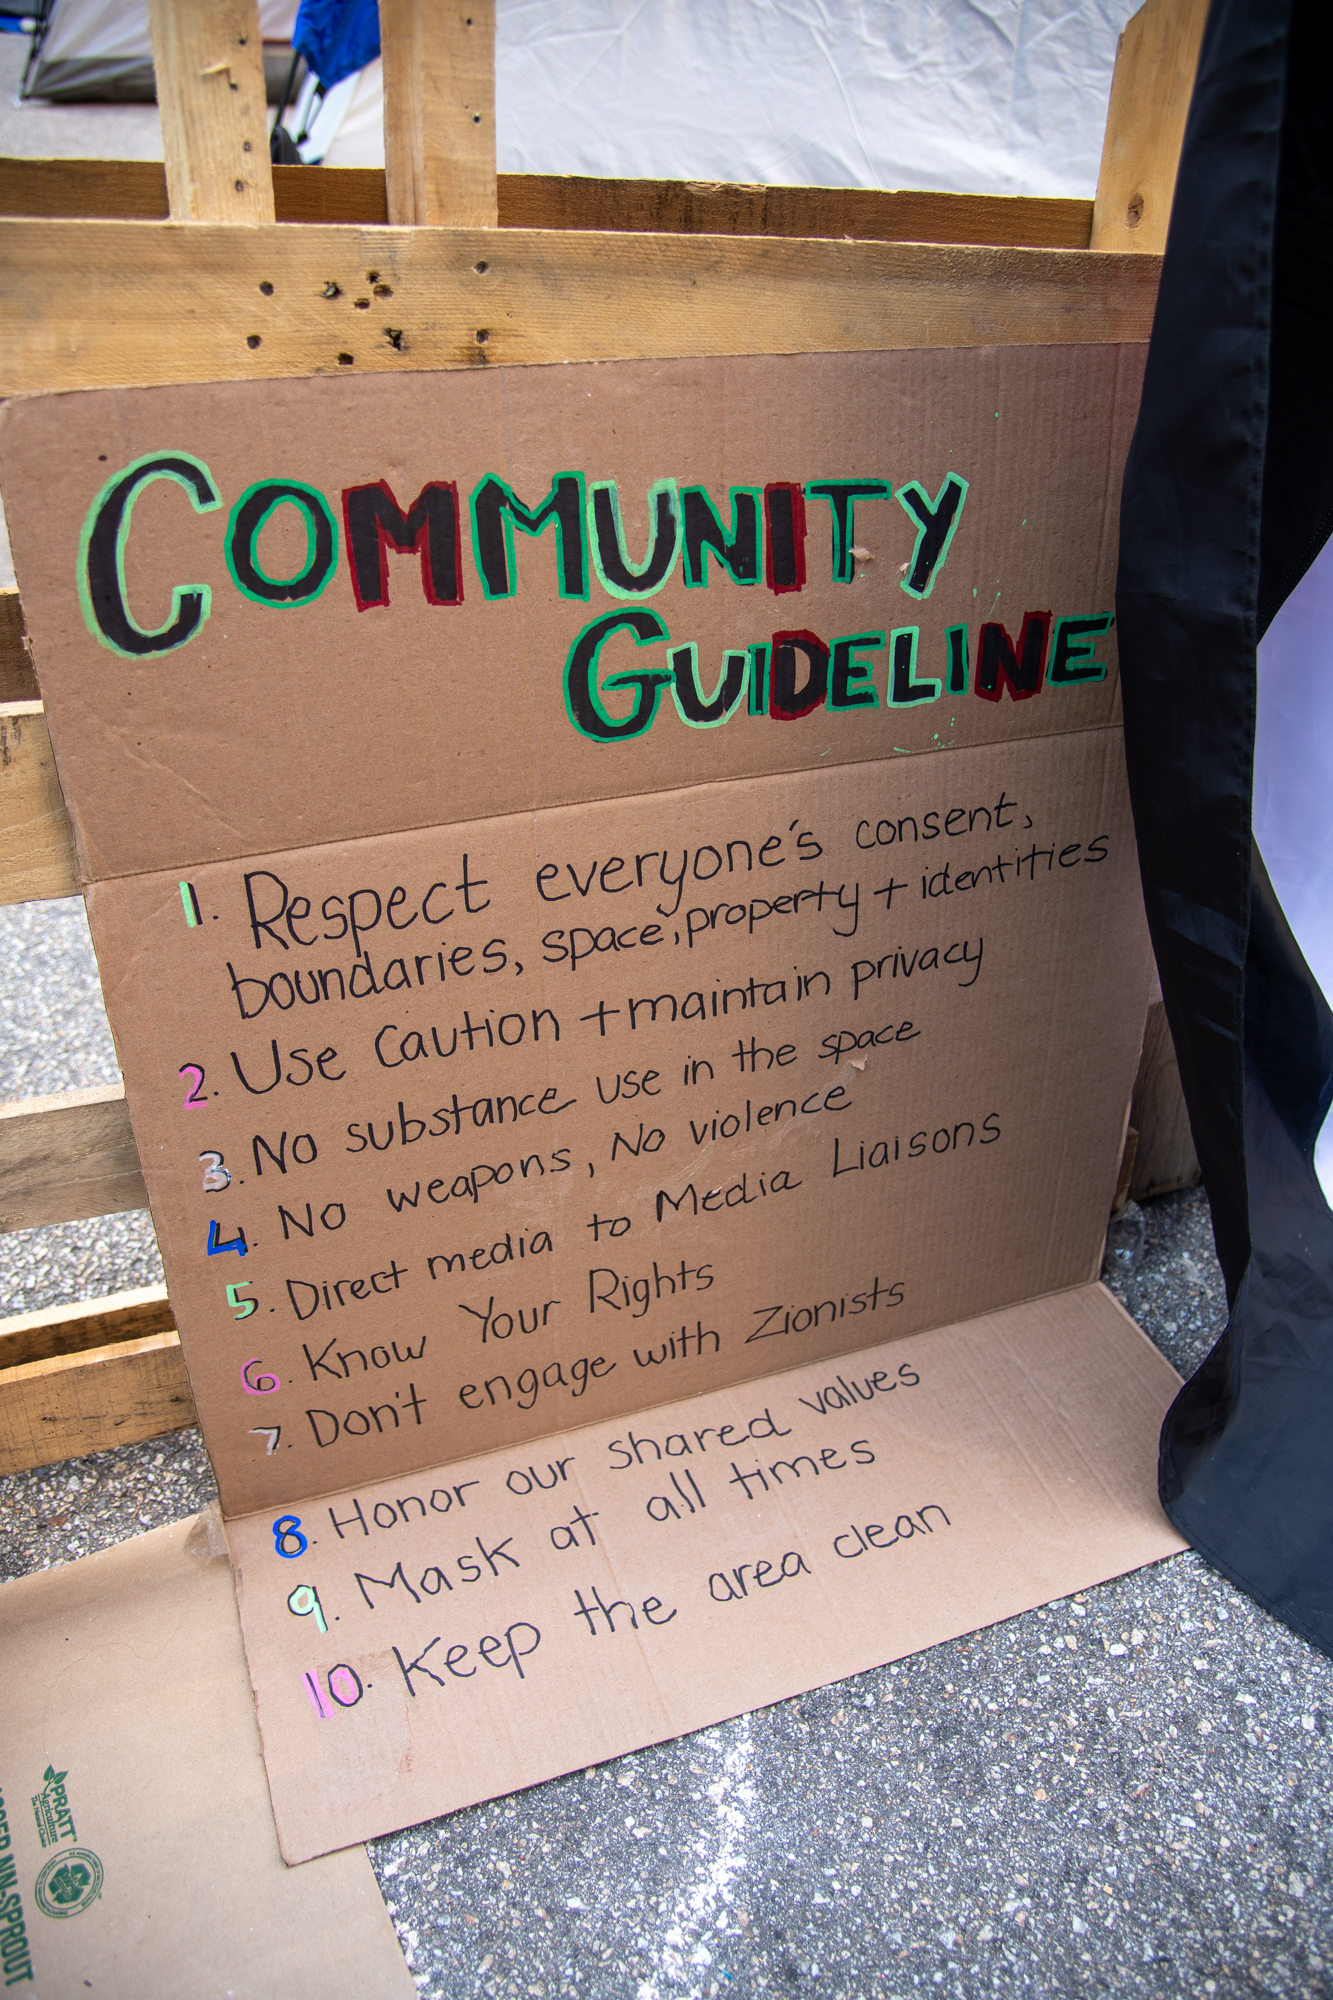 COMMUNITY
GUIDELINE
1. Respect everyone's consent,
boundaries, space, property + identities
2. Use Caution + maintain privacy
3. No substance use in the space
4. No weapons, No violence
5. Direct media to Media Liaisons
6. Know Your Rights
7. Don't engage with Zionists
8. Honor our shared values
9. Mask at all times
10. Keep the area clean
PRATT
Agriculture
NN-SPROUT